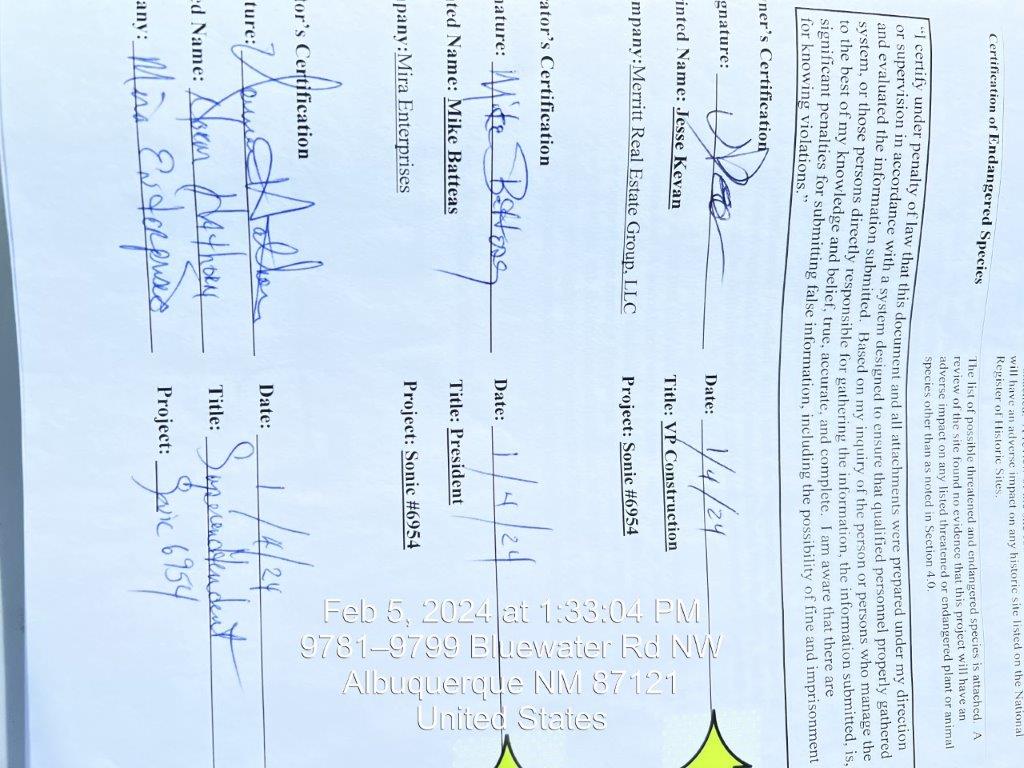 will have an adverse impact on any historic site listed on the National
Register of Historic Sites.
Certification of Endangered Species
The list of possible threatened and endangered species is attached. A
review of the site found no evidence that this project will have an
adverse impact on any listed threatened or endangered plant or animal
species other than as noted in Section 4.0.
"I certify under penalty of law that this document and all attachments were prepared under my direction
or supervision in accordance with a system designed to ensure that qualified personnel properly gathered
and evaluated the information submitted. Based on my inquiry of the person or persons who manage the
system, or those persons directly responsible for gathering the information, the information submitted, is,
to the best of my knowledge and belief, true, accurate, and complete. I am aware that there are
significant penalties for submitting false information, including the possibility of fine and imprisonment
for knowing violations."
ner's Certification
gnature: Date: 1/4/24
inted Name: Jesse Kevan Title: VP Construction
mpany: Merritt Real Estate Group, LLC Project: Sonic #6954
ator's Certification
nature: Mike Batteas Date: 1/4/24
ted Name: Mike Batteas Title: President
pany: Mira Enterprises Project: Sonic #6954
or's Certification
ture: Date: 1/4/24
ed Name: Title: Superintendent
any: Mira Enterprises Project: Sonic 6954
Feb 5, 2024 at 1:33:04 PM
9781–9799 Bluewater Rd NW
Albuquerque NM 87121
United States